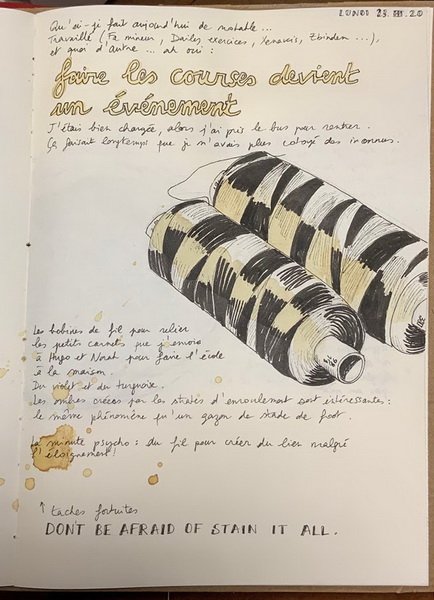 LUNDI 23. III. 20
Qu'ai-je fait aujourd'hui de notable...
Travaillé (Fa mineur, Dailes exercices, Xenakis, Zbinden...),
et quoi d'autre ... ah oui :
faire les courses devient
un événement
J'étais bien chargée, alors j'ai pris le bus pour rentrer.
Ça faisait longtemps que je n'avais plus cotoyé des inconnus.
Les bobines de fil pour relier
les petits carnets que j'envoie
à Hugo et Norah pour faire l'école
à la maison.
Du violet et du turquoise.
Les ombres créées par les strates d'enroulement sont intéressantes:
le même phénomène qu'un gazon de stade de foot.
La minute psycho : du fil pour créer du lien malgré
l'éloignement!
↑ taches fortuites
DON'T BE AFRAID OF STAIN IT ALL.